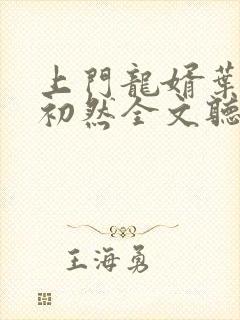 上門龍婿葉
初然全文聽
王海勇